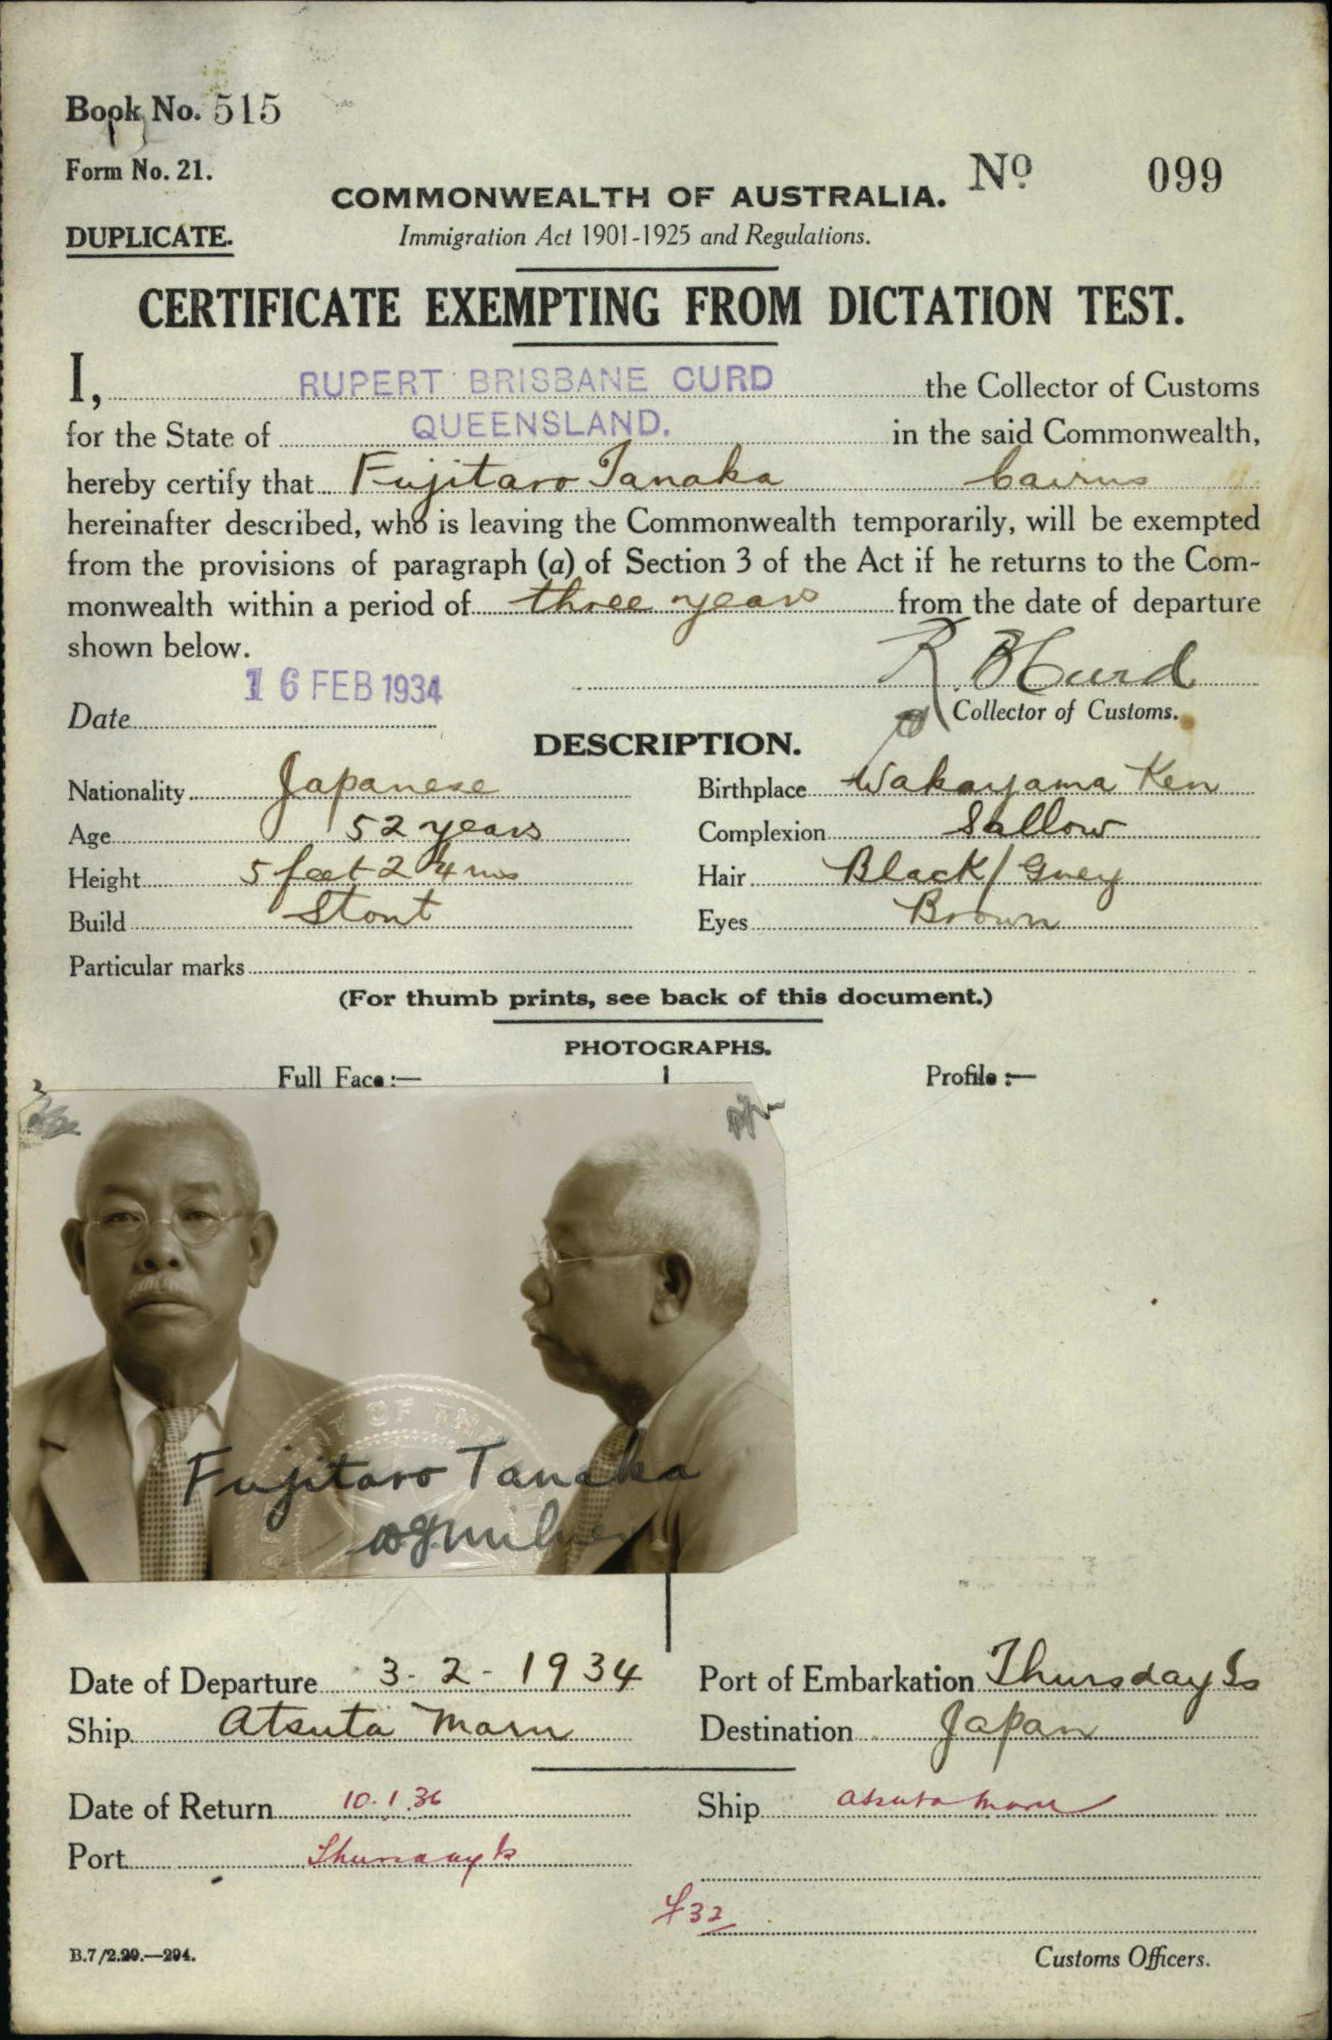 Book No. 515
Form No. 21.
No 099
COMMONWEALTH OF AUSTRALIA.
DUPLICATE.
Immigration Act 1901-1925 and Regulations.
CERTIFICATE EXEMPTING FROM DICTATION TEST.
I, RUPERT BRISBANE CURD the Collector of Customs
for the State of QUEENSLAND. in the said Commonwealth,
hereby certify that Fujitaro Tanaka Cairns
hereinafter described, who is leaving the Commonwealth temporarily, will be exempted
from the provisions of paragraph (a) of Section 3 of the Act if he returns to the Com-
monwealth within a period of three years from the date of departure
shown below.
R B Curd
16 FEB 1934
Date
Collector of Customs.
DESCRIPTION.
Nationality Japanese Birthplace Wakayama Ken
Age 52 years Complexion Sallow
Height 5 feet 2 1/4 ins Hair Black/Grey
Build Stout Eyes Brown
Particular marks
(For thumb prints, see back of this document.)
PHOTOGRAPHS.
Full Face:— Profile:—
Fujitaro Tanaka
Date of Departure 3-2-1934 Port of Embarkation Thursday Is
Ship Atsuta Maru Destination Japan
Date of Return 10.1.36 Ship Atsuta Maru
Port Thursday Is
£32
B.7/2.29.—294.
Customs Officers.